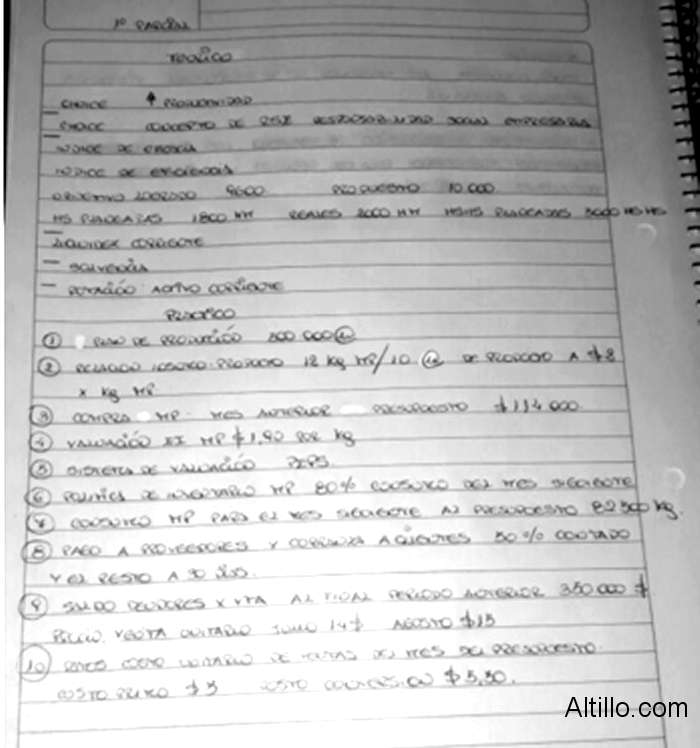 1º PARCIAL
TEORICO
CHOICE ↑ PRODUCTIVIDAD
— CHOICE CONCEPTO DE RSE RESPONSABILIDAD SOCIAL EMPRESARIA
— INDICE DE EFICACIA
INDICE DE EFICIENCIA
OBJETIVO LOGRADO 9600 PROPUESTO 10.000
HS PLANEADAS 1800 HH REALES 2000 HH PLANEADAS 3000
— LIQUIDEZ CORRIENTE
— SOLVENCIA
— ROTACIÓN ACTIVO CORRIENTE
PRACTICO
① PLAN DE PRODUCCIÓN 300 000 Ⓤ
② RELACIÓN INSUMO-PRODUCTO 12 Kg MP/10 Ⓤ DE PRODUCTO A $8
x Kg MP.
③ COMPRA MP MES ANTERIOR PRESUPUESTO $114 000.
④ VALUACIÓN EI MP $1,90 POR Kg
⑤ SISTEMA DE VALUACIÓN PEPS
⑥ POLITICA DE INVENTARIO MP 80% CONSUMO DEL MES SIGUIENTE
⑦ CONSUMO MP PARA EL MES SIGUIENTE AL PRESUPUESTO 82500 Kg.
⑧ PAGO A PROVEEDORES Y COBRANZA A CLIENTES 50% CONTADO
Y EL RESTO A DÍAS.
⑨ SALDO DEUDORES X VTA AL FINAL PERIODO ANTERIOR 350.000 $
PRECIO VENTA UNITARIO JUNIO 14$ AGOSTO $15
⑩ COSTO UNITARIO DE VENTAS DEL MES DEL PRESUPUESTO.
COSTO PRIMO $3 COSTO CONVERSION $5,50.
Altillo.com